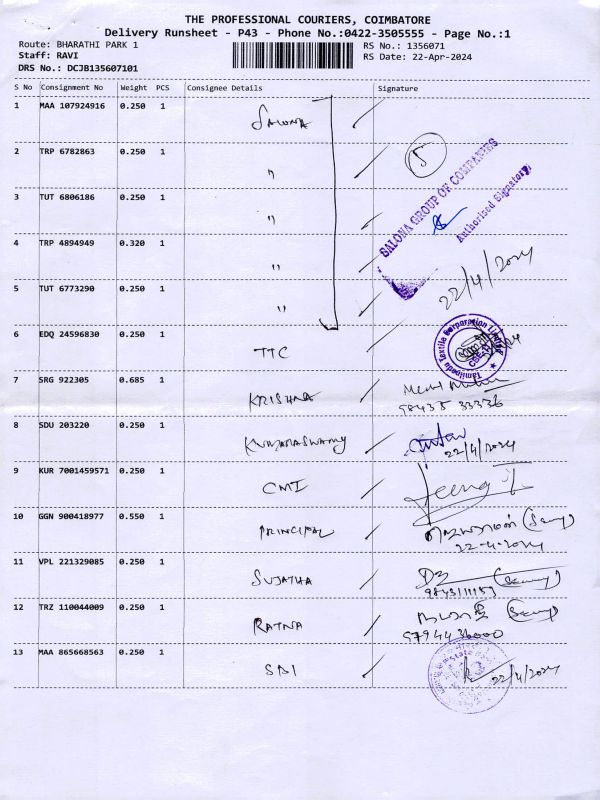 THE PROFESSIONAL COURIERS, COIMBATORE
Delivery Runsheet - P43 - Phone No.:0422-3505555 - Page No.:1
Route: BHARATHI PARK 1
RS No.: 1356071
Staff: RAVI
RS Date: 22-Apr-2024
DRS No.: DCJB135607101
S No Consignment No Weight PCS Consignee Details Signature
1 MAA 107924916 0.250 1 SALONA
2 TRP 6782863 0.250 1 "
5
3 TUT 6806186 0.250 1 "
SALONA GROUP OF COMPANIES
Authorised Signatory
4 TRP 4894949 0.320 1 "
5 TUT 6773290 0.250 1 "
22/4/2024
6 EDQ 24596830 0.250 1 TTC
Tamilnadu Textile Corporation Limited
7 SRG 922305 0.685 1 KRISHNA
98435 33336
8 SDU 203220 0.250 1 KUMARASWAMY
22/4/2024
9 KUR 7001459571 0.250 1 CMI
10 GGN 900418977 0.550 1 PRINCIPAL
22-4-2024
11 VPL 221329085 0.250 1 SUJATHA
12 TRZ 110044009 0.250 1 RATNA
9794436000
13 MAA 865668563 0.250 1 SBI
22/4/2024